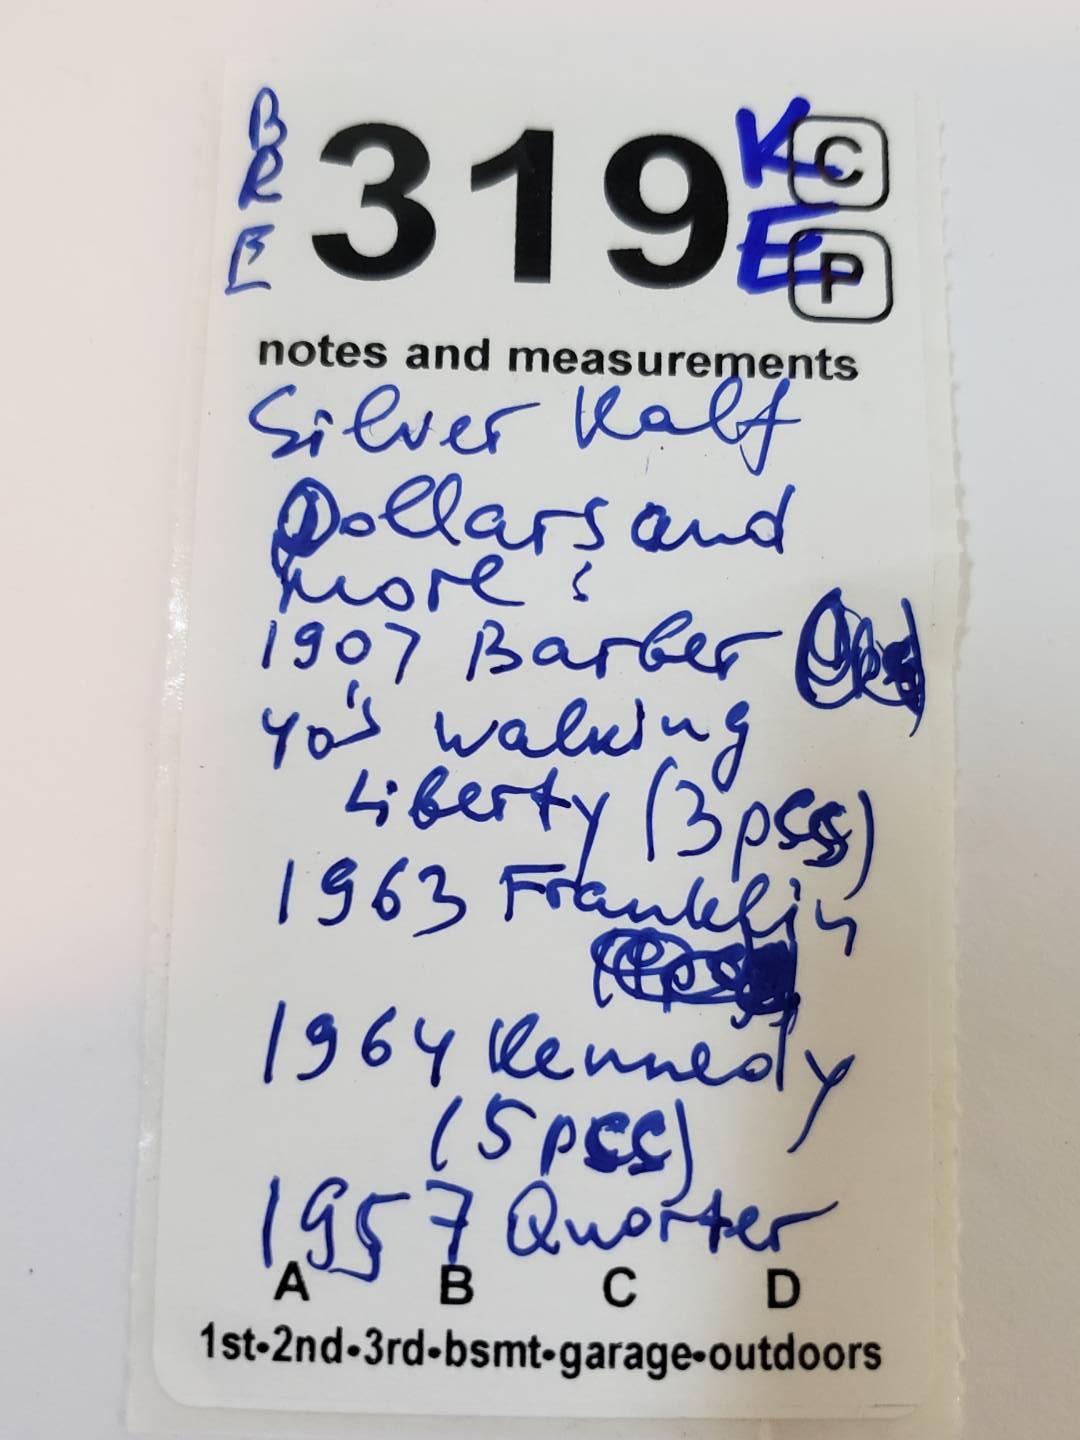 B
R
E
319
K
E
C
P
notes and measurements
Silver Half
Dollars and
more:
1907 Barber
40's walking
Liberty (3 pcs)
1963 Franklin
1964 Kennedy
(5 pcs)
1957 Quarter
A B C D
1st•2nd•3rd•bsmt•garage•outdoors